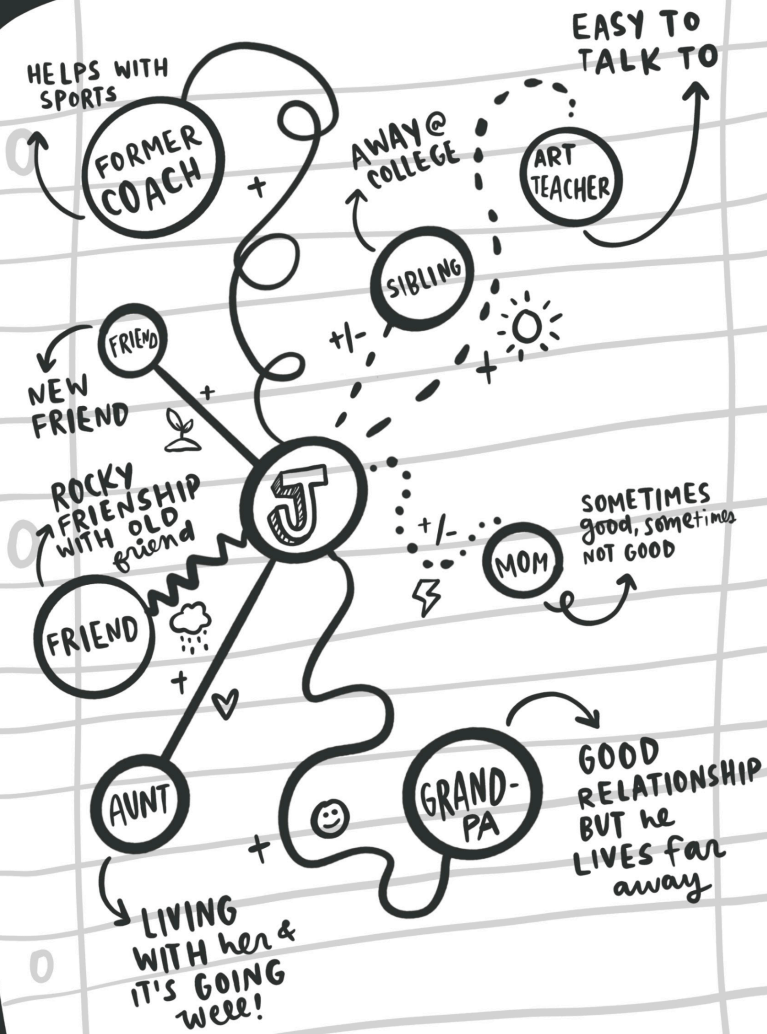 EASY TO
TALK TO
HELPS WITH
SPORTS
FORMER
COACH
+
AWAY @
COLLEGE
ART
TEACHER
SIBLING
+/-
+
FRIEND
+
NEW
FRIEND
J
ROCKY
FRIENSHIP
WITH OLD
friend
FRIEND
+/-
MOM
SOMETIMES
good, sometimes
NOT GOOD
+
AUNT
GRAND-
PA
+
GOOD
RELATIONSHIP
BUT he
LIVES far
away
LIVING
WITH her &
IT'S GOING
well!